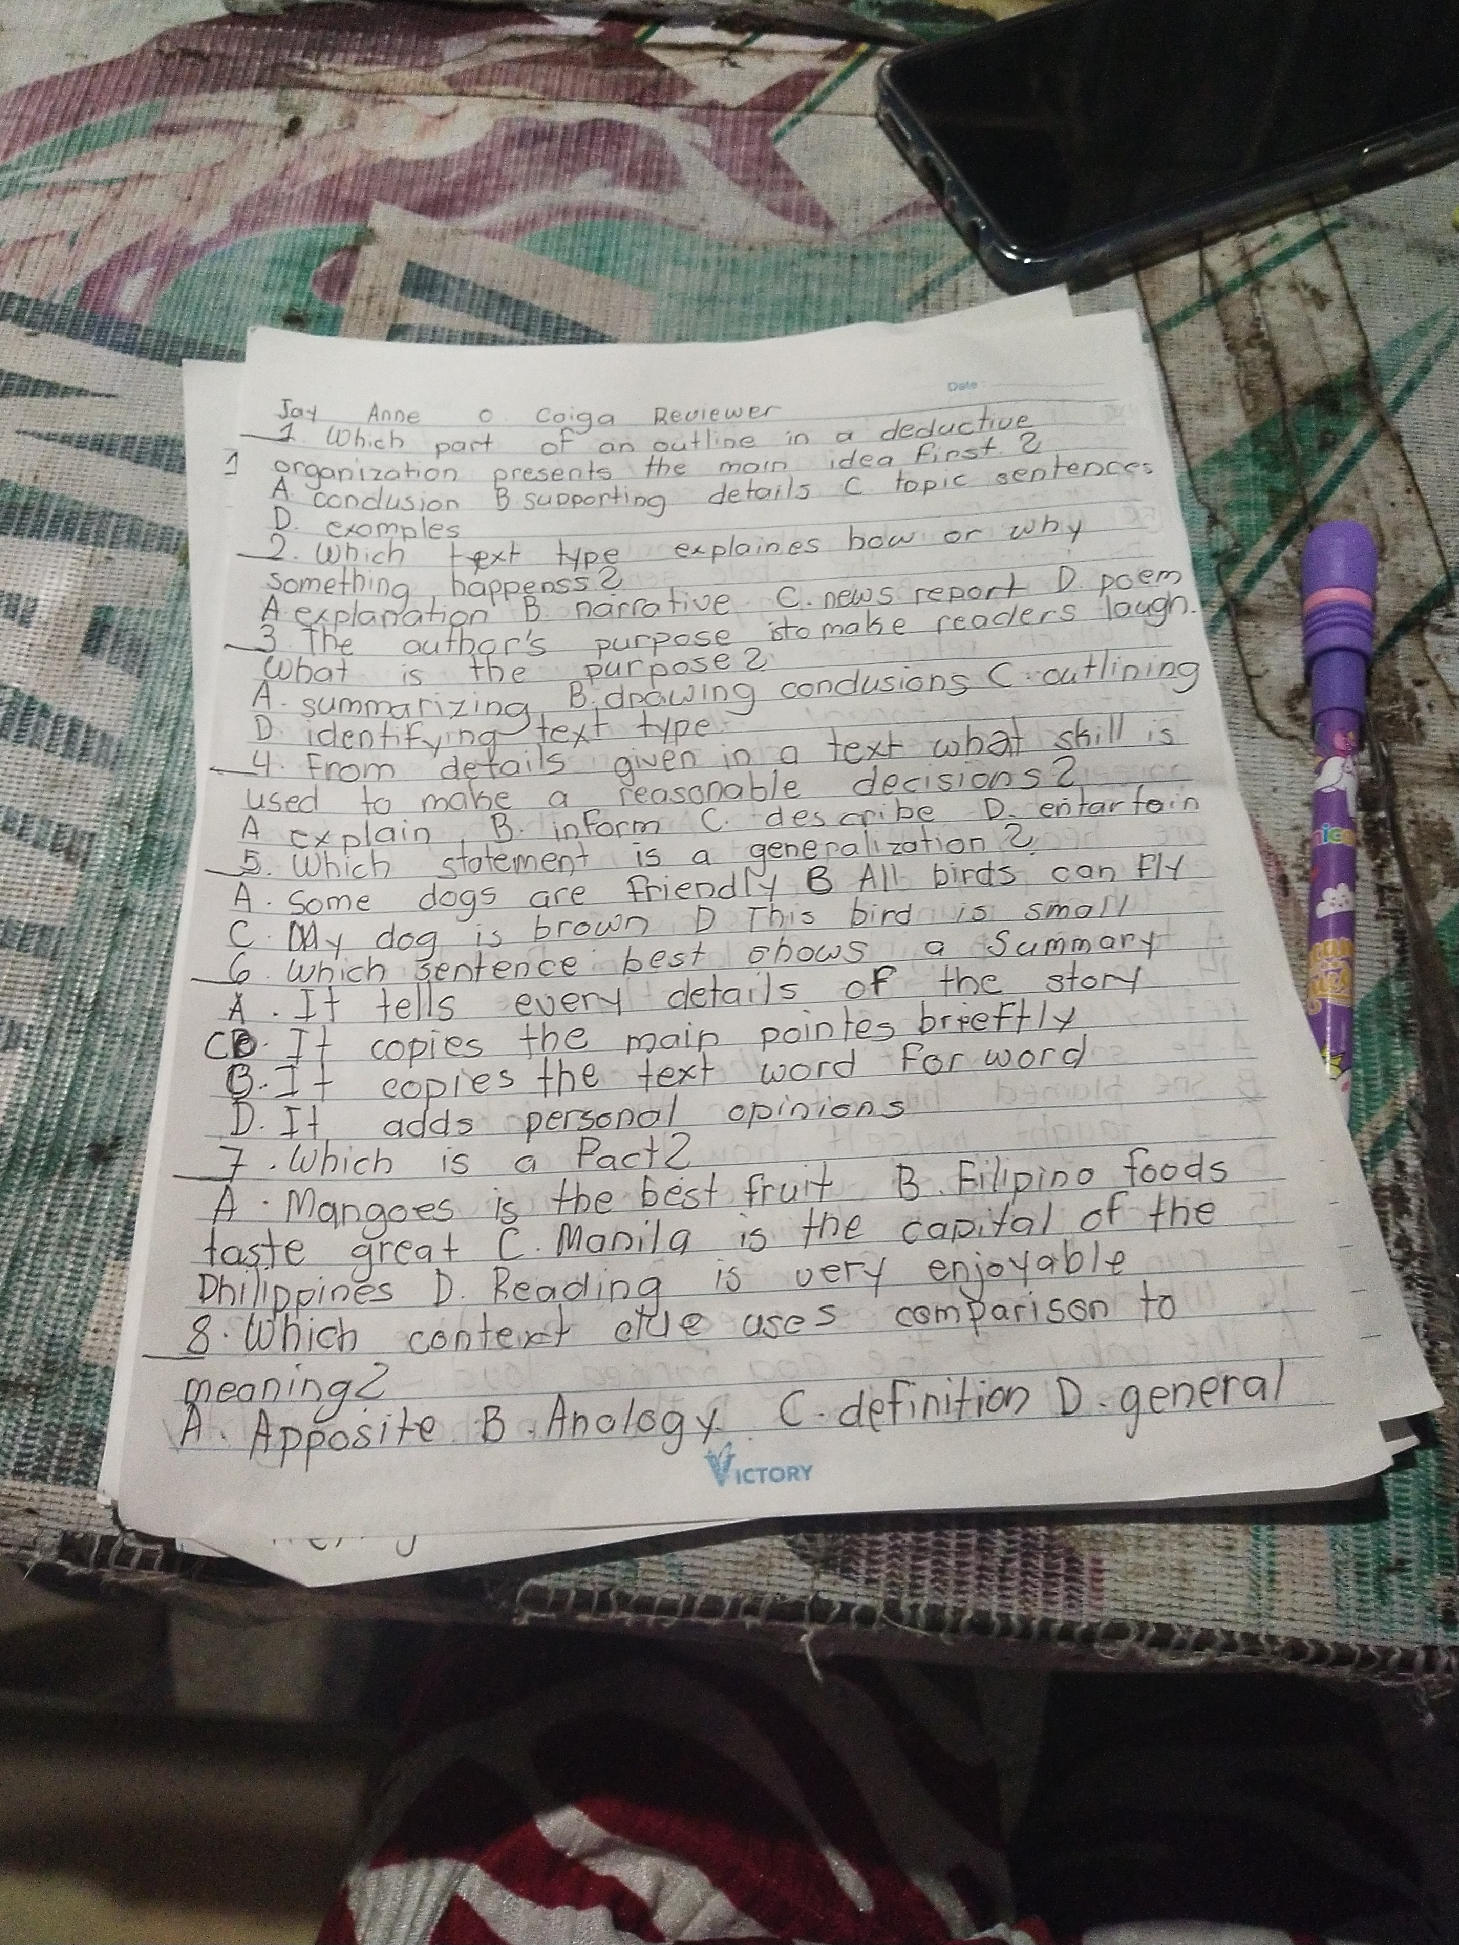 Date :
Jay Anne O Caiga Reviewer
1. Which part of an outline in a deductive
1 organization presents the main idea first?
A. conclusion B supporting details C topic sentences
D. examples
2. Which text type explaines how or why
something happenss?
A explanation B. narrative C. news report D. poem
3 The author's purpose is to make readers laugh.
What is the purpose?
A. summarizing B. drawing conclusions C. outlining
D. identifying text type
4. From details given in a text what skill is
used to make a reasonable decisions?
A explain B. inform C. describe D. entartain
5. Which statement is a generalization?
A. Some dogs are friendly B All birds can fly
C. My dog is brown D This bird is small
6. Which sentence best shows a Summary
A. It tells every details of the story
C. It copies the main pointes brieftly
B. It copies the text word for word
D. It adds personal opinions
7. Which is a Fact?
A. Mangoes is the best fruit B. Filipino foods
taste great C. Manila is the capital of the
Philippines D. Reading is very enjoyable
8. Which context clue uses comparison to
meaning?
A. Apposite B. Anology C. definition D. general
VICTORY